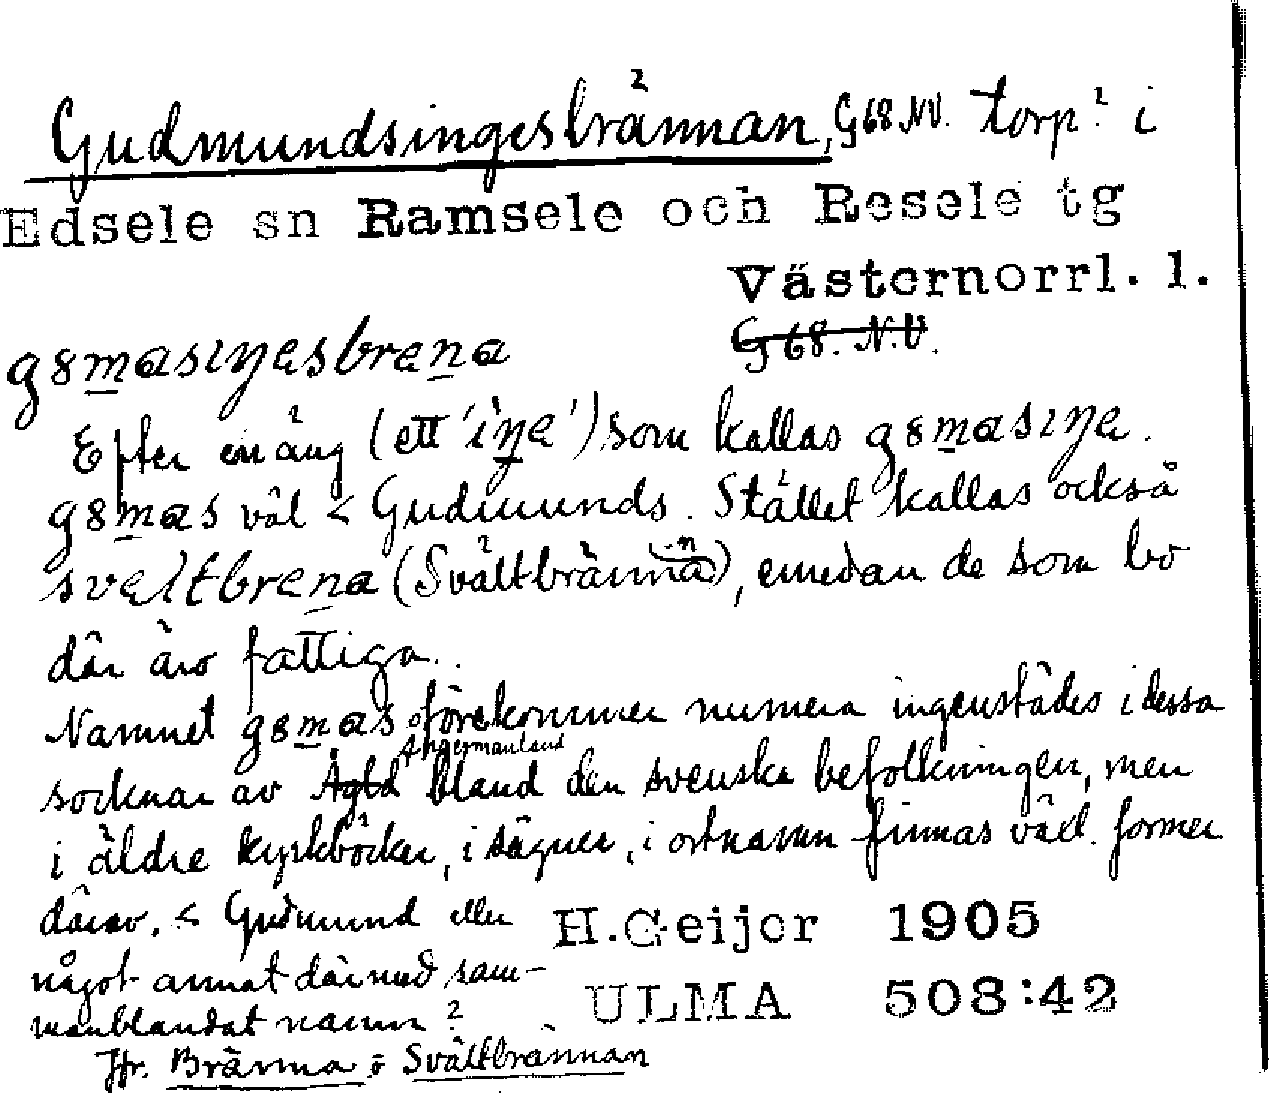 Gudmundsingesbrännan, G68 NV. torp? i
Edsele sn Ramsele och Resele tg
Västernorrl. l.
G 68. N.V.
g8masıŋesbrena
Efter en äng (ett 'iŋe') som kallas g8masıŋe.
g8mas väl < Gudmunds. Stället kallas också
sveltbrena (Svältbränna), emedan de som bo
där äro fattiga.
Namnet g8mas förekommer numera ingenstädes i dessa
Ångermanland
socknar av Ågld bland den svenska befolkningen, men
i äldre kyrkböcker, i sägner, i ortnamn finnas väl former
därav. < Gudmund eller
H. Geijer 1905
något annat därmed sam-
manblandat namn?
ULMA 508:42
Jfr. Bränna o Svältbrännan